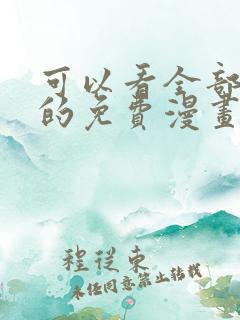 可以看全部
的免費漫畫
程從東
未經同意禁止轉載